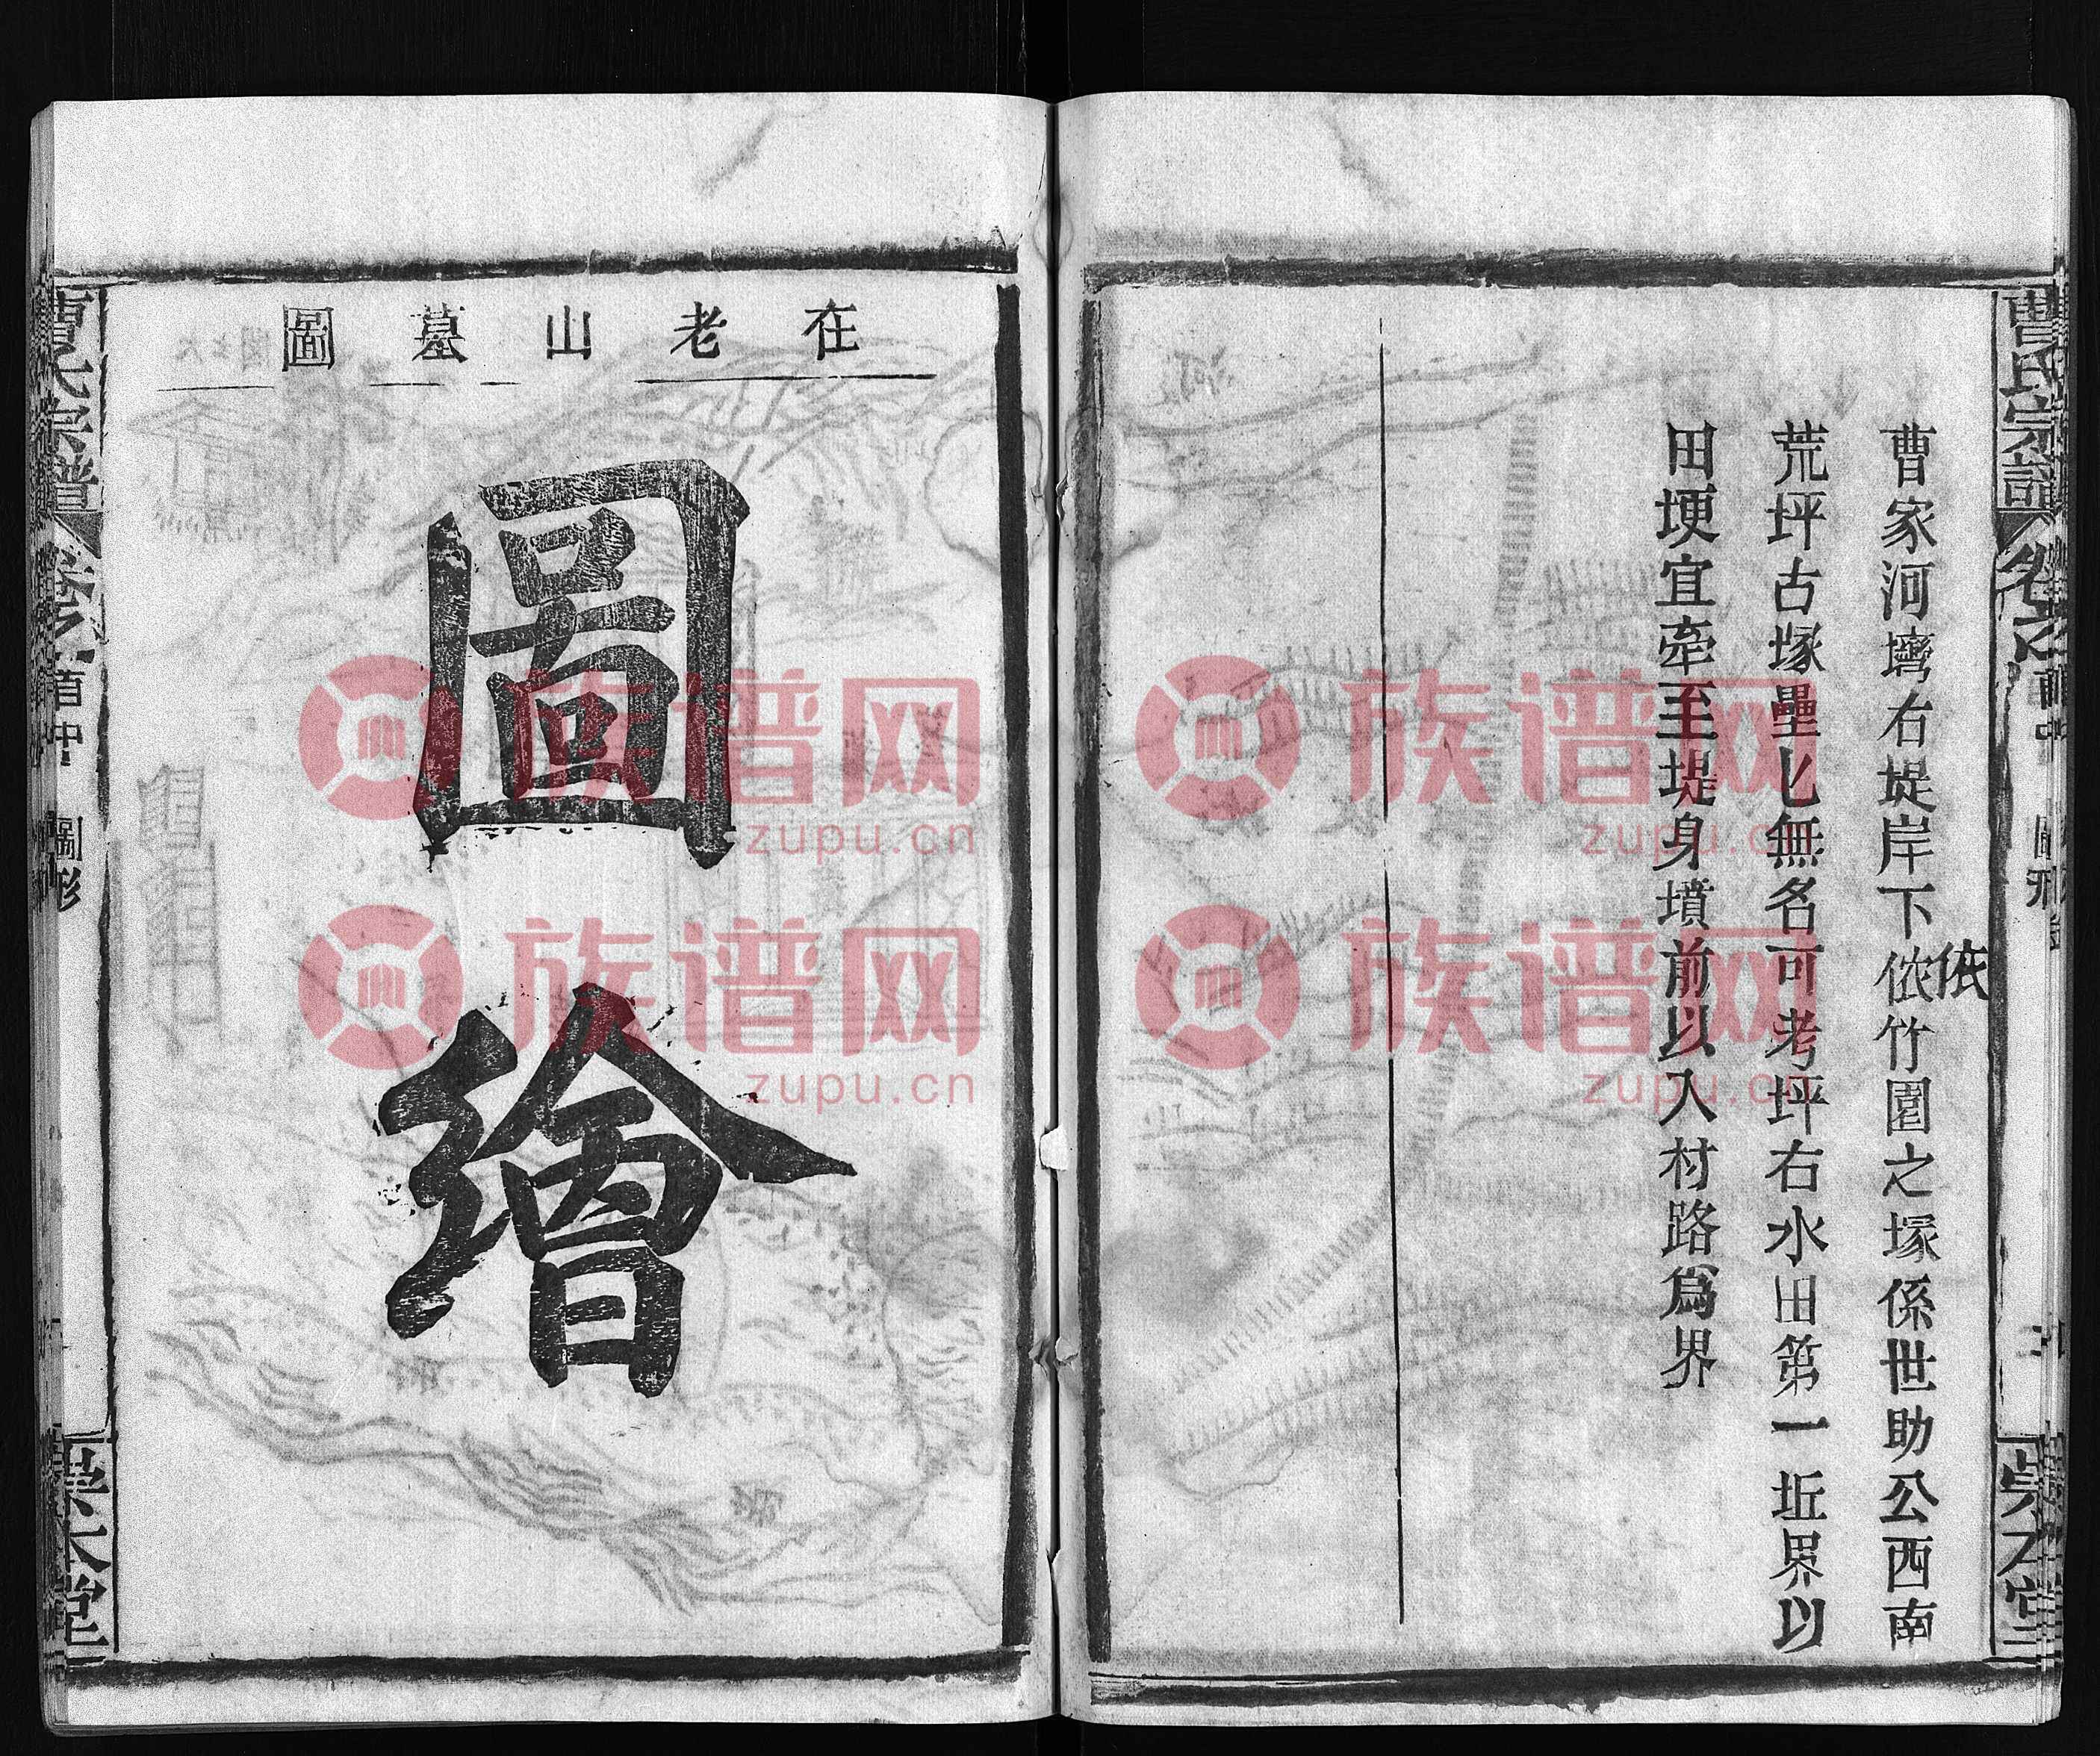 曹氏宗譜
首中
曹家河塆右堤岸下依竹園之塚係世助公西南
依
荒坪古塚壘乜無名可考坪右水田第一坵界以
田埂宜牽至堤身墳前以入村路爲界
在老山墓圖
圖繪
曹氏宗譜
首中
圖形
堂
族谱网
zupu.cn
族谱网
zupu.cn
族谱网
zupu.cn
族谱网
zupu.cn